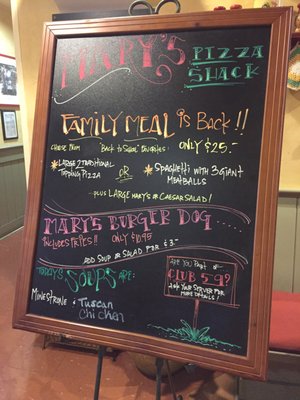 MARY'S PIZZA
SHACK
FAMILY MEAL is Back!!
CHOOSE FROM "Back to School" FAVORITES: ONLY $25-
LARGE 2 TRADITIONAL
TOPPING PIZZA
OR
SPAGHETTI WITH 3 GIANT
MEATBALLS
-PLUS LARGE MARY'S OR CAESAR SALAD!
MARY'S BURGER DOG
INCLUDES FRIES!! ONLY $10.95
ADD SOUP OR SALAD FOR $3-
TODAY'S SOUPS ARE:
MINESTRONE & Tuscan
Chicken
ARE YOU PART OF
CLUB 59?
ASK YOUR SERVER FOR
MORE DETAILS!